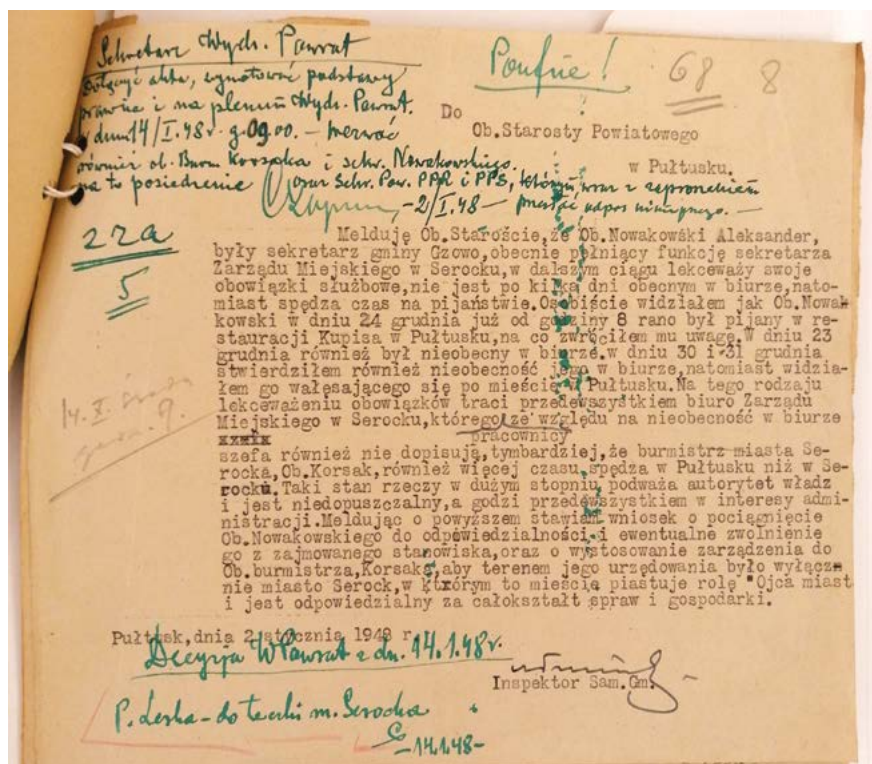 Sekretarz Wydz. Powiat
Dołączyć akta, wynotować podstawy
prawne i na plenum Wydz. Powiat.
w dniu 14/I.48r. g. 09.00. — wezwać
również ob. Burm. Korsaka i sekr. Nowakowskiego
na to posiedzenie oraz Sekr. Pow. PPR i PPS, którym wraz z zaproszeniem
-2/I.48 — przesłać odpis niniejszego. —
Poufne!
68 8
Do
Ob.Starosty Powiatowego
w Pułtusku.
22a
5
Melduję Ob.Staroście,że Ob.Nowakowski Aleksander,
były sekretarz gminy Gzowo,obecnie pełniący funkcję sekretarza
Zarządu Miejskiego w Serocku,w dalszym ciągu lekceważy swoje
obowiązki służbowe,nie jest po kilka dni obecnym w biurze,nato-
miast spędza czas na pijaństwie.Osobiście widziałem jak Ob.Nowak
kowski w dniu 24 grudnia już od godziny 8 rano był pijany w re-
stauracji Kupisa w Pułtusku,na co zwróciłem mu uwagę.W dniu 23
grudnia również był nieobecny w biurze.w dniu 30 i 31 grudnia
stwierdziłem również nieobecność jego w biurze,natomiast widzia-
łem go wałęsającego się po mieście w Pułtusku.Na tego rodzaju
lekceważeniu obowiązków traci przedewszystkiem biuro Zarządu
Miejskiego w Serocku,którego ze względu na nieobecność w biurze
xxxix pracownicy
szefa również nie dopisują,tymbardziej,że burmistrz miasta Se-
rocka,Ob.Korsak,również więcej czasu spędza w Pułtusku niż w Se-
rocku.Taki stan rzeczy w dużym stopniu podważa autorytet władz
i jest niedopuszczalny,a godzi przedewszystkiem w interesy admi-
nistracji.Meldując o powyższem stawiam wniosek o pociągnięcie
Ob.Nowakowskiego do odpowiedzialności i ewentualne zwolnienie
go z zajmowanego stanowiska,oraz o wystosowanie zarządzenia do
Ob.burmistrza,Korsaka,aby terenem jego urzędowania było wyłącz
nie miasto Serock,w ktxórym to mieście piastuje rolę "Ojca miast
i jest odpowiedzialny za całokształt spraw i gospodarki.
Pułtusk,dnia 2 stycznia 1948 r.
Decyzja WPowiat z dn. 14.1.48r.
Inspektor Sam.Gm.
P. Leska - do teczki m. Serocka
-14.1.48-